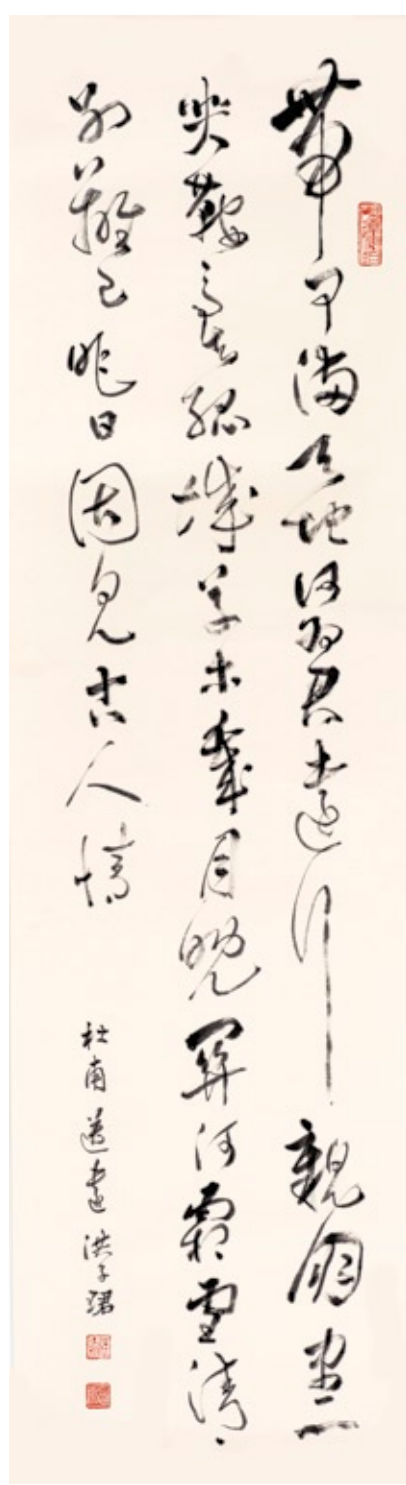 帶甲滿天地何為君遠行親朋盡一
哭鞍馬去孤城草木歲月晚關河霜雪清
別離已昨日因見古人情
杜甫送遠 洪子珺